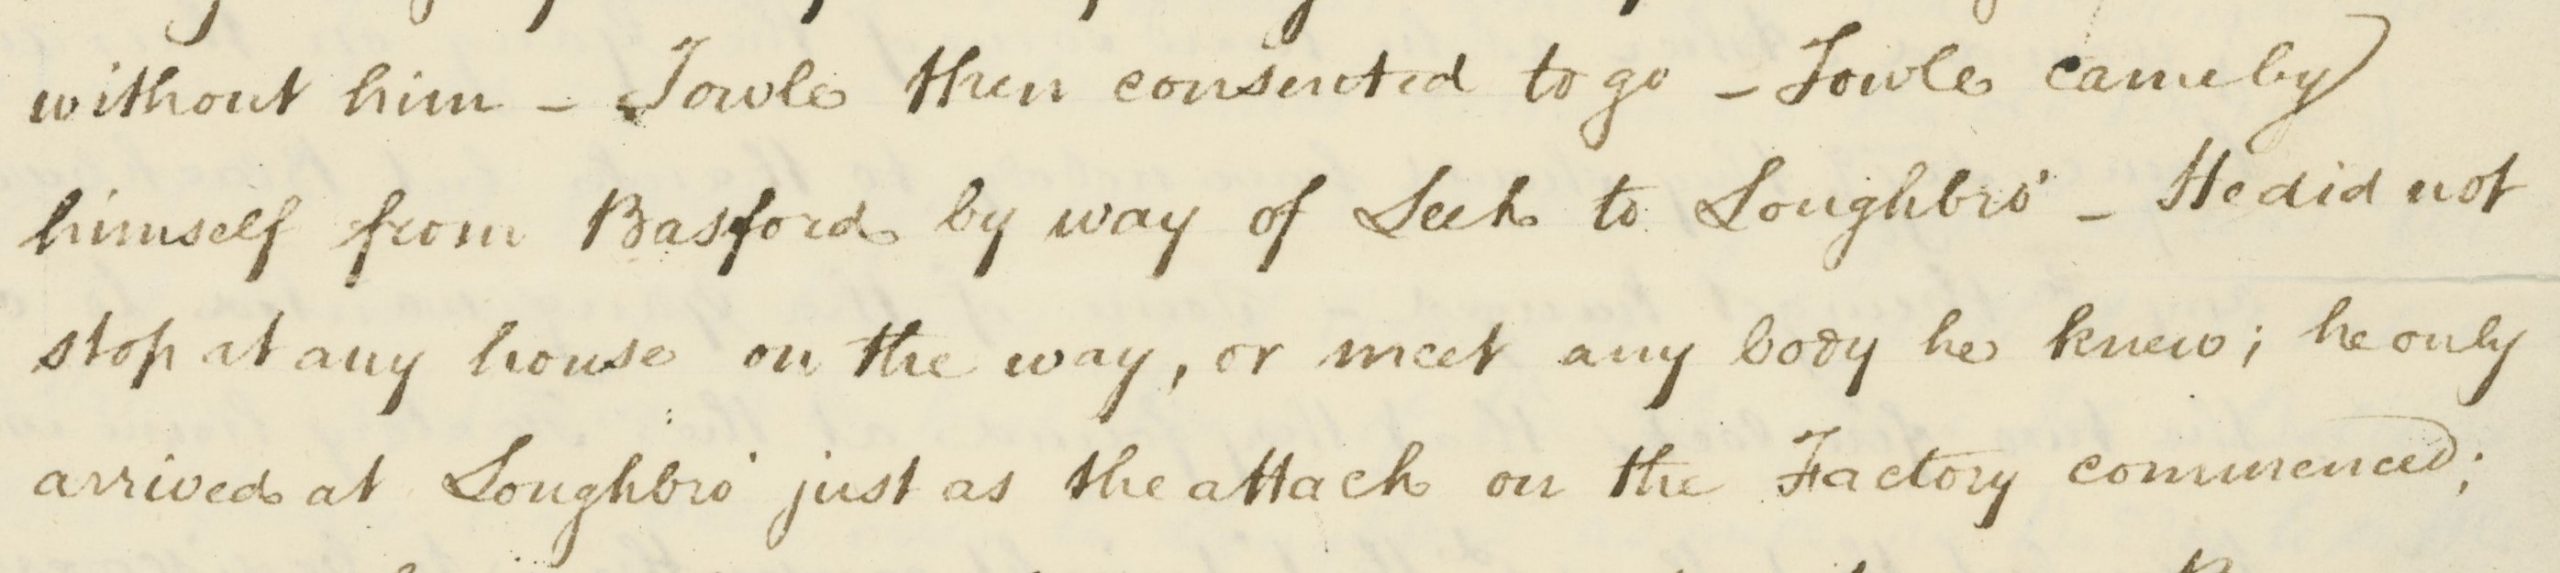 without him - Towle then consented to go - Towle came by
himself from Basford by way of Leek to Loughbro' - He did not
stop at any house on the way, or meet any body he knew; he only
arrived at Loughbro' just as the attack on the Factory commenced;